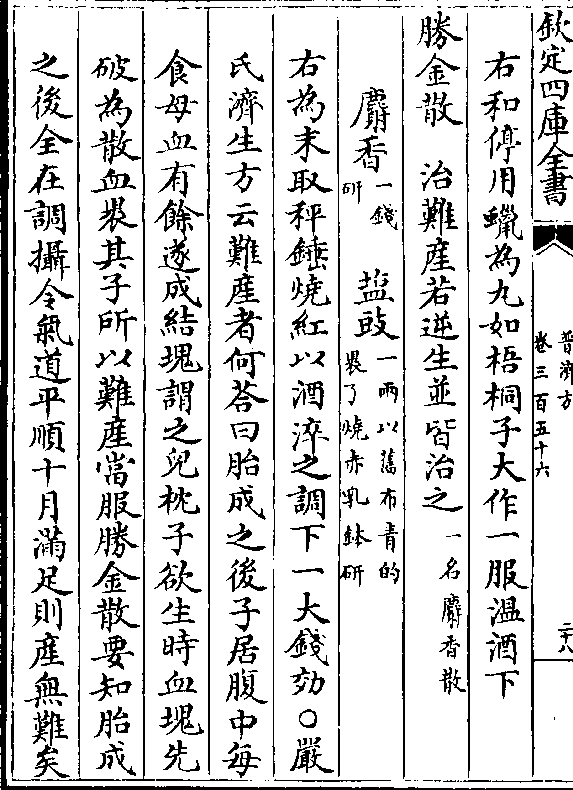 欽定四庫全書
普濟方
卷三百五十六
二十八
右和停用蠟為丸如梧桐子大作一服温酒下
勝金散　治難産若逆生並皆治之一名麝香散
麝香一錢研　盐豉一兩以舊布青的裂了燒赤乳鉢研
右為末取秤錘燒紅以酒淬之調下一大錢効〇嚴
氏濟生方云難産者何荅曰胎成之後子居腹中每
食母血有餘遂成結塊謂之兒枕子欲生時血塊先
破為散血裂其子所以難産當服勝金散要知胎成
之後全在調攝令氣道平順十月滿足則産無難矣